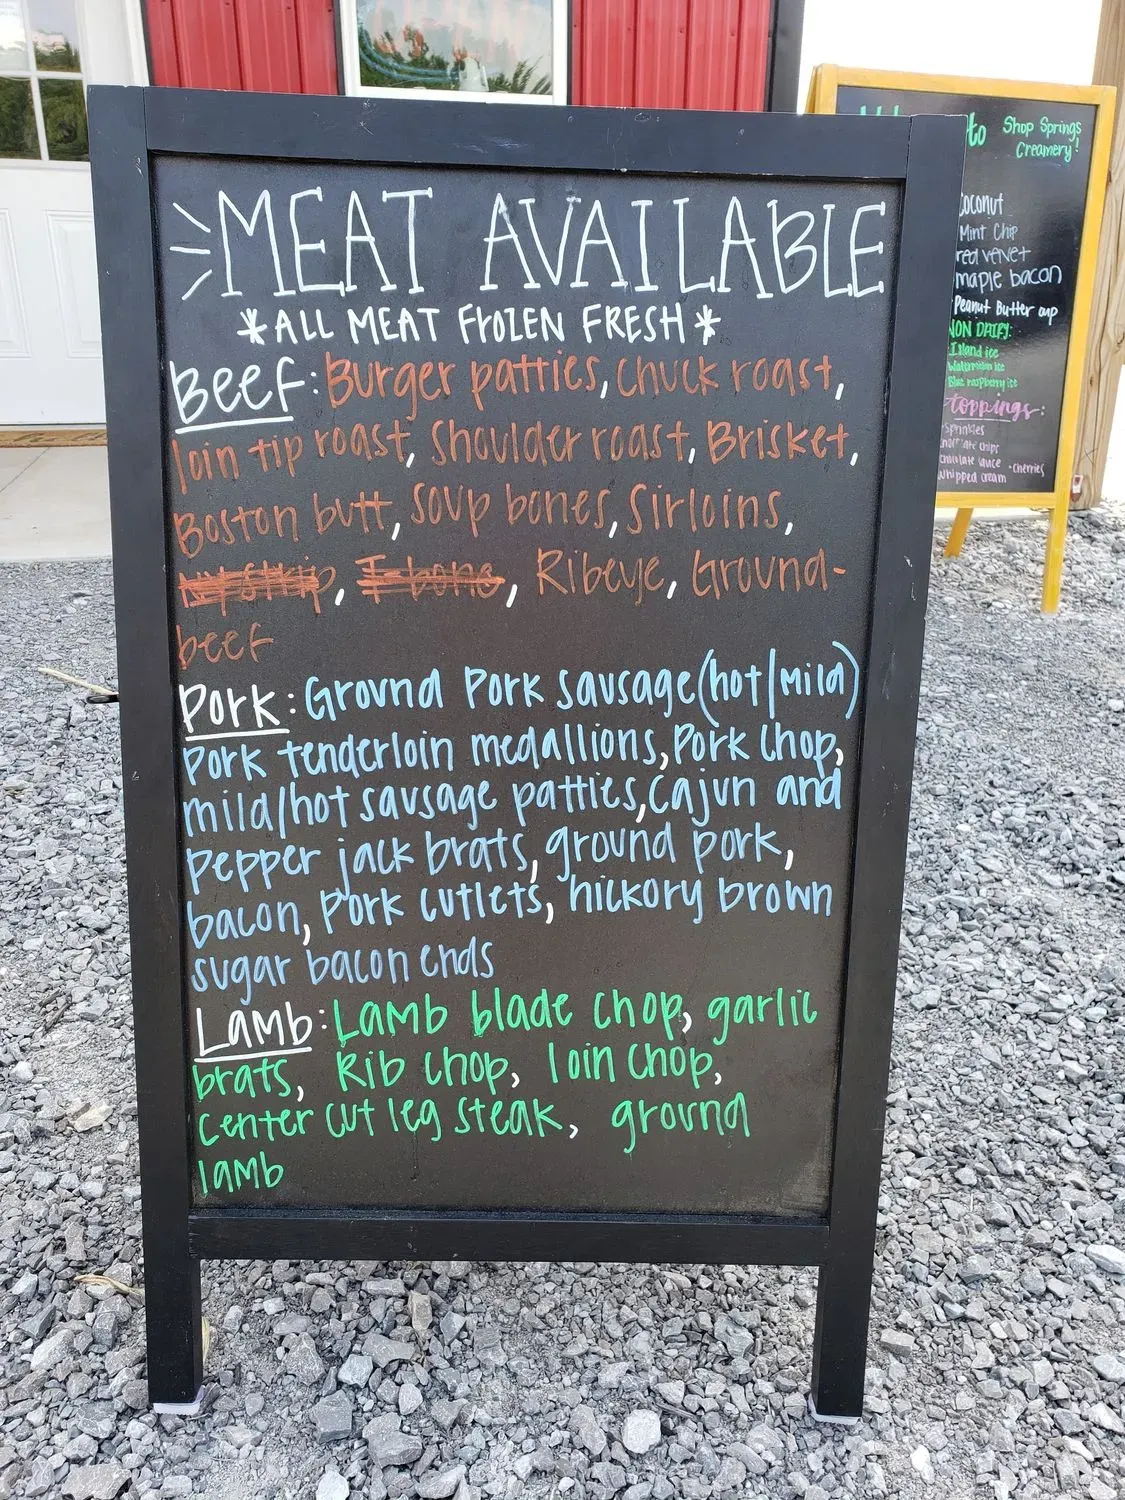 MEAT AVAILABLE
*ALL MEAT FROZEN FRESH*
Beef: Burger patties, chuck roast,
loin tip roast, shoulder roast, Brisket,
Boston butt, soup bones, Sirloins,
NY Strip, T-bone, Ribeye, Ground-
beef
Pork: Ground Pork sausage (hot/mild)
Pork tenderloin medallions, Pork Chop,
mild/hot sausage patties, Cajun and
pepper jack brats, ground pork,
bacon, Pork cutlets, hickory brown
sugar bacon ends
Lamb: Lamb blade chop, garlic
brats, Rib chop, loin chop,
center cut leg steak, ground
lamb
to Shop Springs
Creamery!
coconut
Mint Chip
red velvet
maple bacon
Peanut Butter cup
NON DAIRY:
Island ice
Watermelon ice
Blue raspberry ice
toppings:
sprinkles
chocolate chips
chocolate sauce • cherries
whipped cream